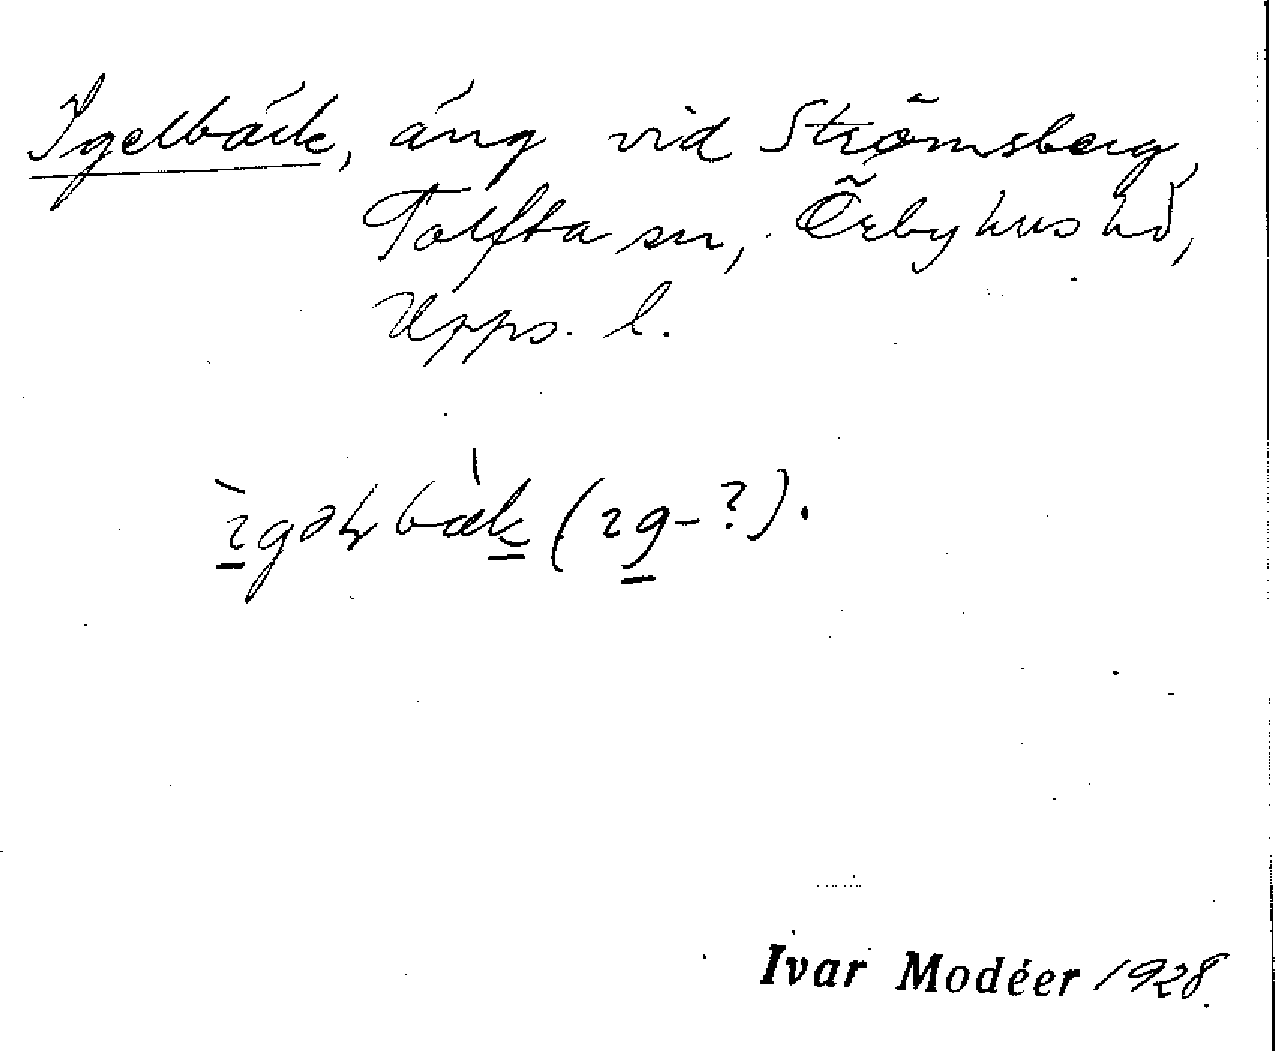 Igelbäck, äng vid Strömsberg,
Tolfta sn, Örbyhus hd,
Upps. l.
ìgəɭbæ̀k (ıg-?).
Ivar Modéer 1928.